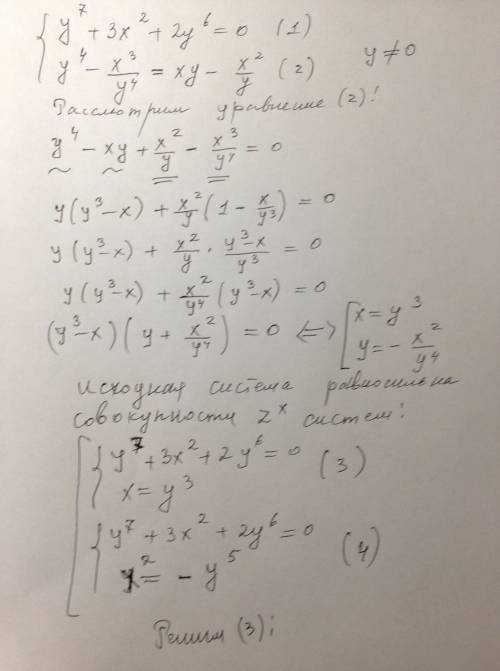 { y⁷ + 3x² + 2y⁶ = 0 (1)
{ y⁴ - x³/y⁴ = xy - x²/y (2) y ≠ 0
Рассмотрим уравнение (2)!
y⁴ - xy + x²/y - x³/y⁴ = 0
y(y³-x) + x²/y (1 - x/y³) = 0
y(y³-x) + x²/y · y³-x/y³ = 0
y(y³-x) + x²/y⁴ (y³-x) = 0
(y³-x)(y + x²/y⁴) = 0 <=> [ x = y³
y = - x²/y⁴
Исходная система равносильна
совокупности 2ˣ систем:
[ { y⁷ + 3x² + 2y⁶ = 0 (3)
{ x = y³
{ y⁷ + 3x² + 2y⁶ = 0 (4)
{ x² = - y⁵
Решим (3):